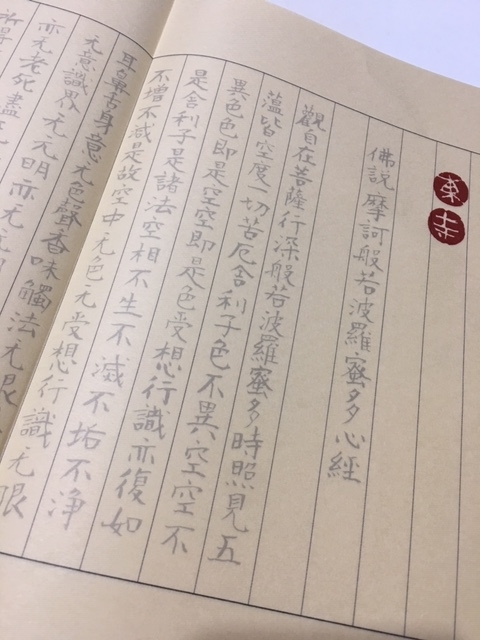 東寺
佛説摩訶般若波羅蜜多心經
觀自在菩薩行深般若波羅蜜多時照見五
蘊皆空度一切苦厄舍利子色不異空空不
異色色即是空空即是色受想行識亦復如
是舍利子是諸法空相不生不滅不垢不浄
不増不减是故空中无色无受想行識无眼
耳鼻舌身意无色聲香味觸法无眼
无意識界无无明亦无无
亦无老死盡
所得